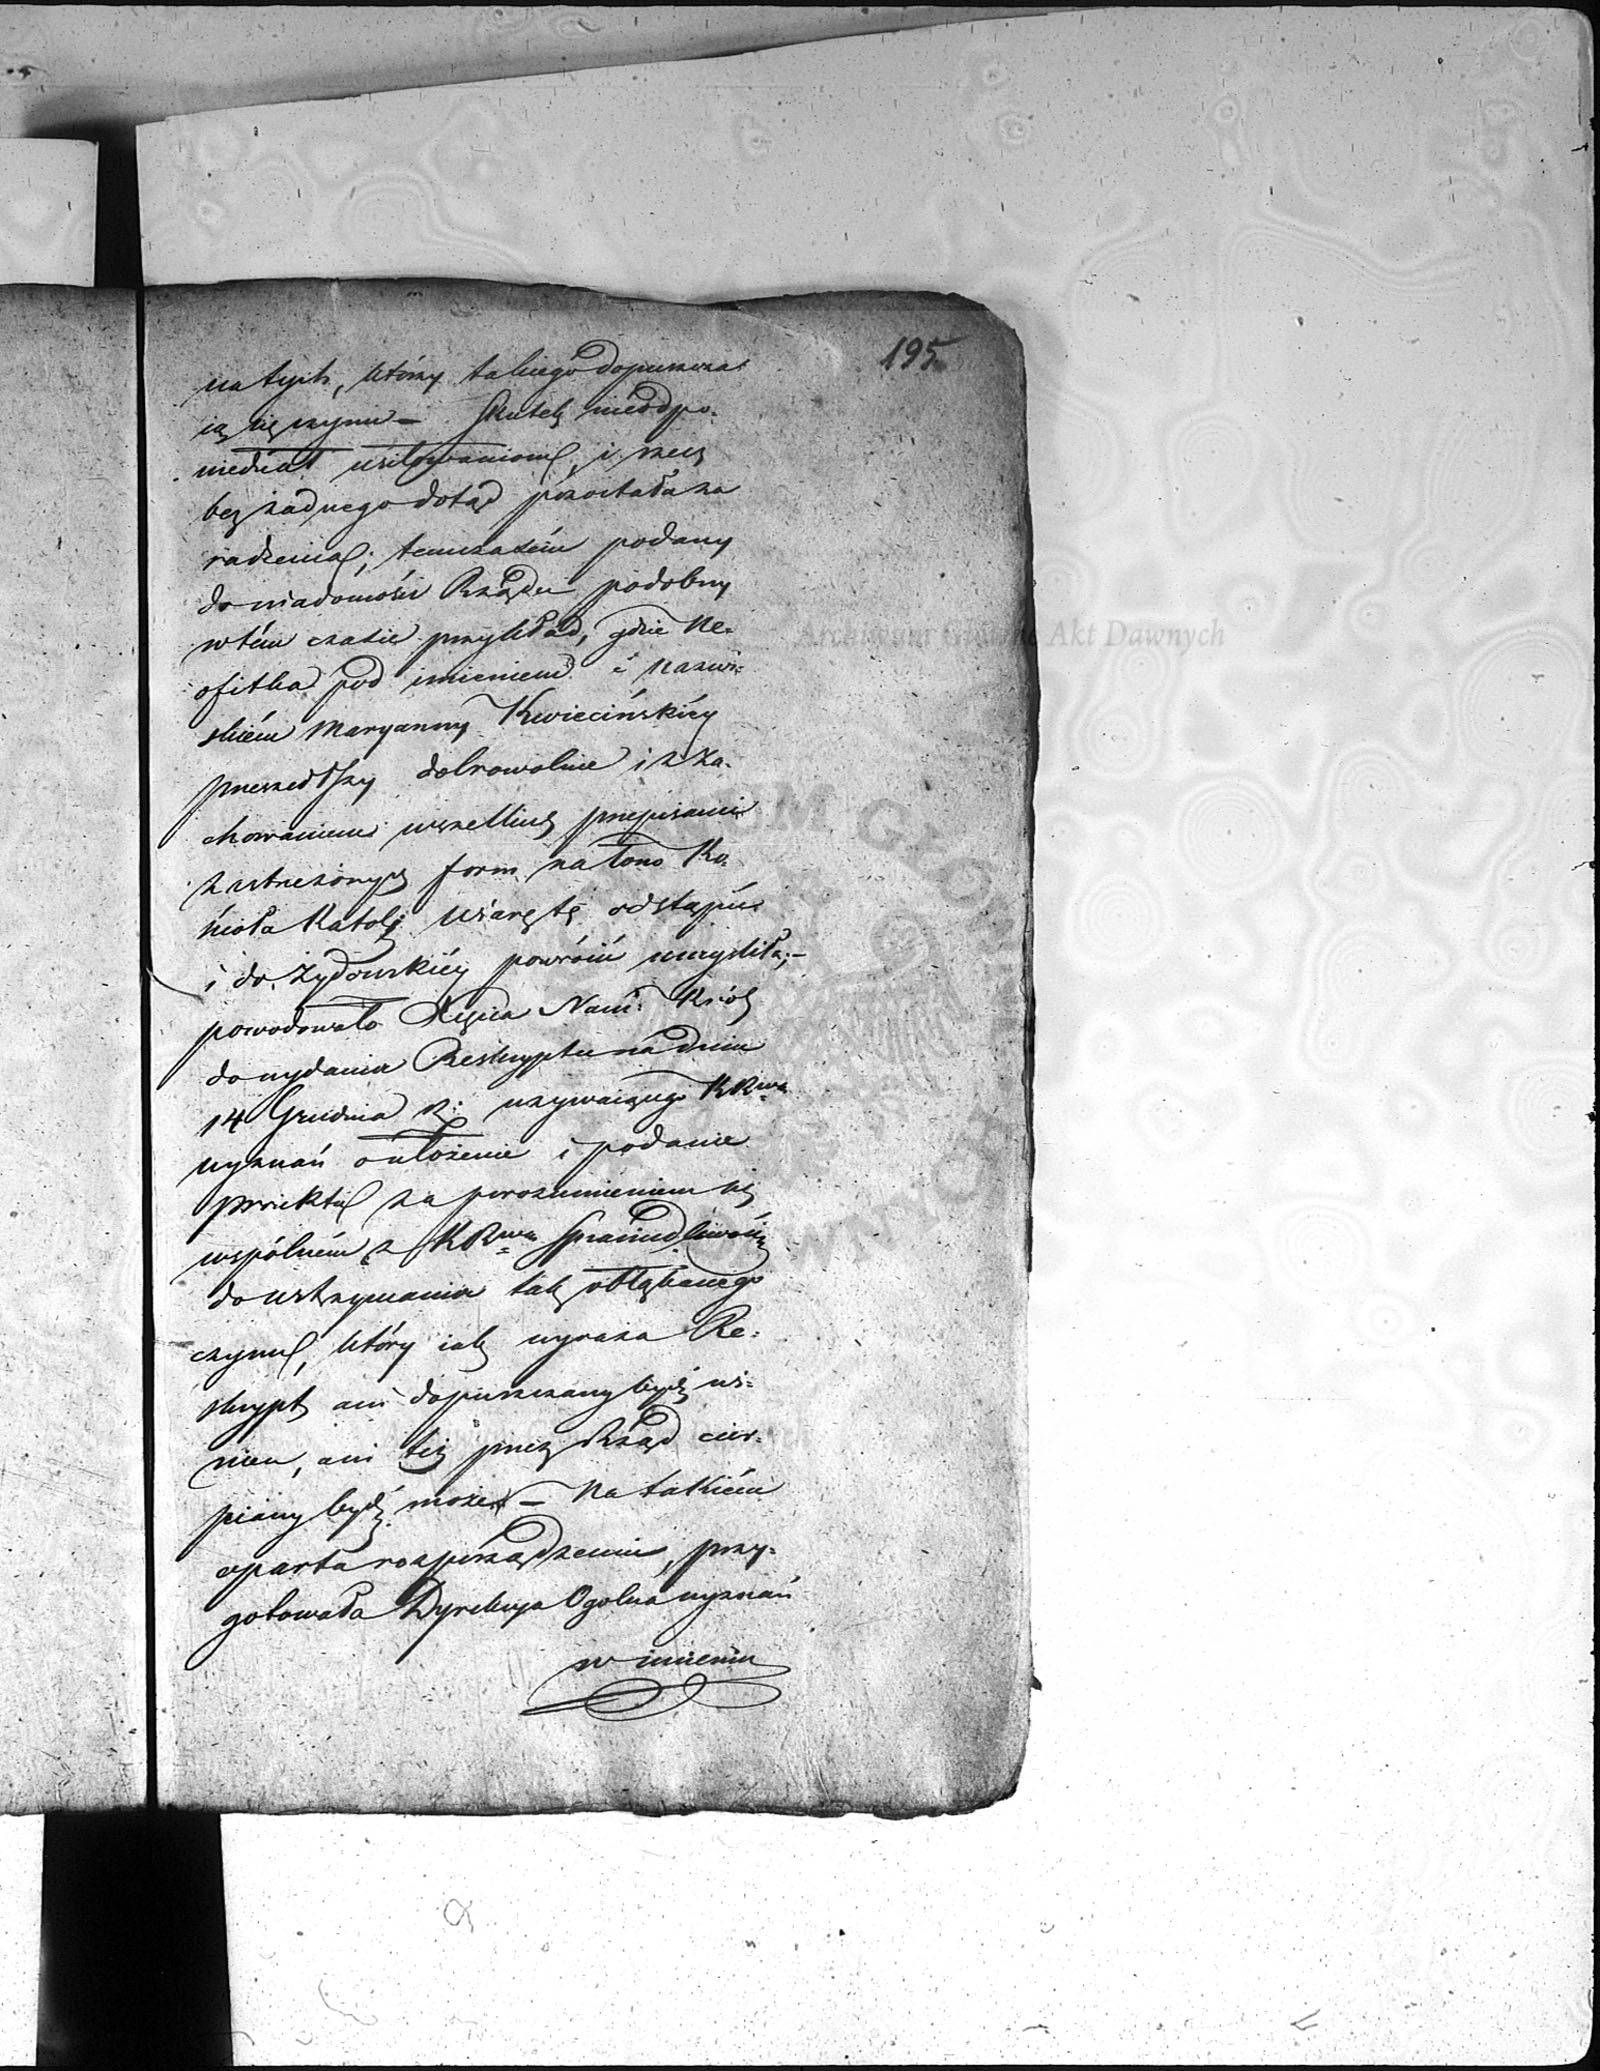 195.
na tych, którzy takiego dopuszcza-
ią się czynu – Skutek nieodpo-
wiedział usiłowaniom, i rzecz
bez żadnego dotąd pozostała za
radzenia; tymczasem podany
do wiadomości Rządu podobny
w tém czasie przykład, gdzie Ne-
ofitka pod imieniem i nazwi-
skiém Maryanny Kwiecińskiéy
przeszedłszy dobrowolnie i z Za-
chowaniem wszelkich przepisami
zastrzeżonych form na łono Ko-
ścioła Katol: wiarę tę odstąpić
i do Żydowskiéy powrócić umyśliła;–
powodowało Xięcia Nam: Król:
do wydania Reskryptu na dniu
14 Grudnia r: wzywaiącego KRwą
wyznań o ułożenie i podanie
proiektu za porozumieniem się
wspólném z KRwą Sprawiedliwości
do wstrzymania tak obłąkanego
czynu, który iak wyraża Re-
skrypt ani dopuszczany bydź wi-
nien, ani też przez Rząd cier-
piany bydź może – Na takiém
oparta rozporządzeniu, przy-
gotowała Dyrekcya Ogólna wyznań
w imieniu
Archiwum Główne Akt Dawnych